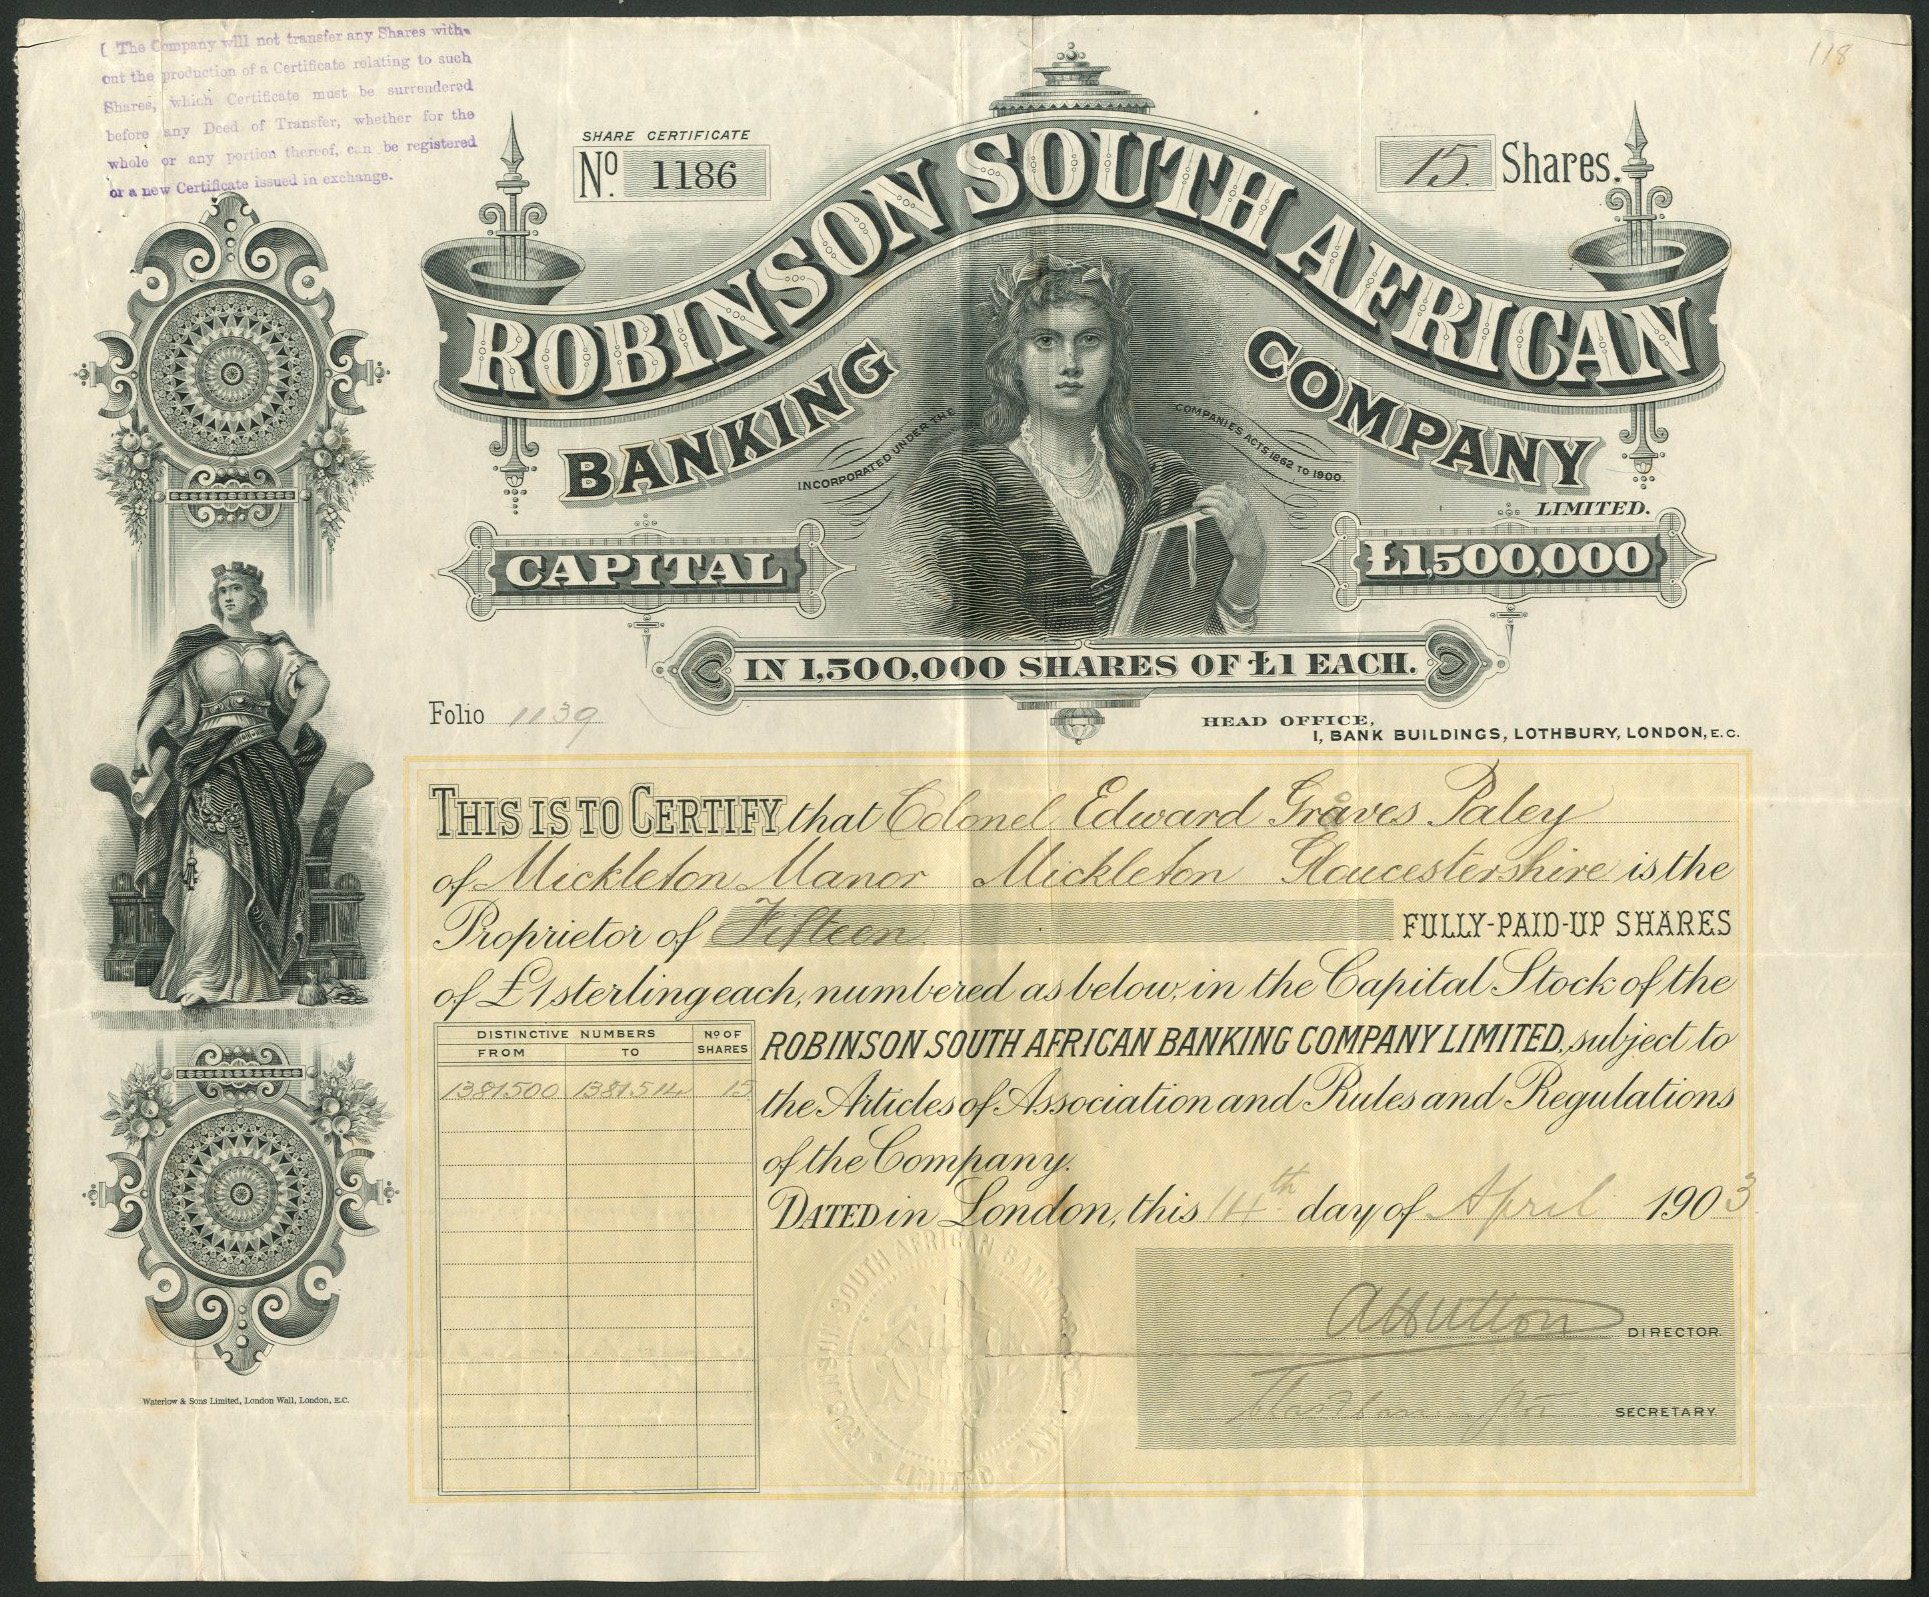 [ The Company will not transfer any Shares with-
out the production of a Certificate relating to such
Shares, which Certificate must be surrendered
before any Deed of Transfer, whether for the
whole or any portion thereof, can be registered
or a new Certificate issued in exchange.
118
SHARE CERTIFICATE
No. 1186
15 Shares.
ROBINSON SOUTH AFRICAN
BANKING COMPANY
LIMITED.
INCORPORATED UNDER THE COMPANIES ACTS 1862 TO 1900
CAPITAL £1,500,000
IN 1,500,000 SHARES OF £1 EACH.
Folio 1139
HEAD OFFICE,
1, BANK BUILDINGS, LOTHBURY, LONDON, E.C.
THIS IS TO CERTIFY that Colonel Edward Graves Paley
of Mickleton Manor Mickleton Gloucestershire is the
Proprietor of Fifteen FULLY-PAID-UP SHARES
of £1 sterling each, numbered as below, in the Capital Stock of the
ROBINSON SOUTH AFRICAN BANKING COMPANY LIMITED, subject to
the Articles of Association and Rules and Regulations
of the Company.
DATED in London, this 14th day of April 1903
DISTINCTIVE NUMBERS No OF SHARES
FROM TO
1381500 1381514 15
ROBINSON SOUTH AFRICAN BANKING COMPANY
LIMITED
DIRECTOR.
SECRETARY.
Waterlow & Sons Limited, London Wall, London, E.C.